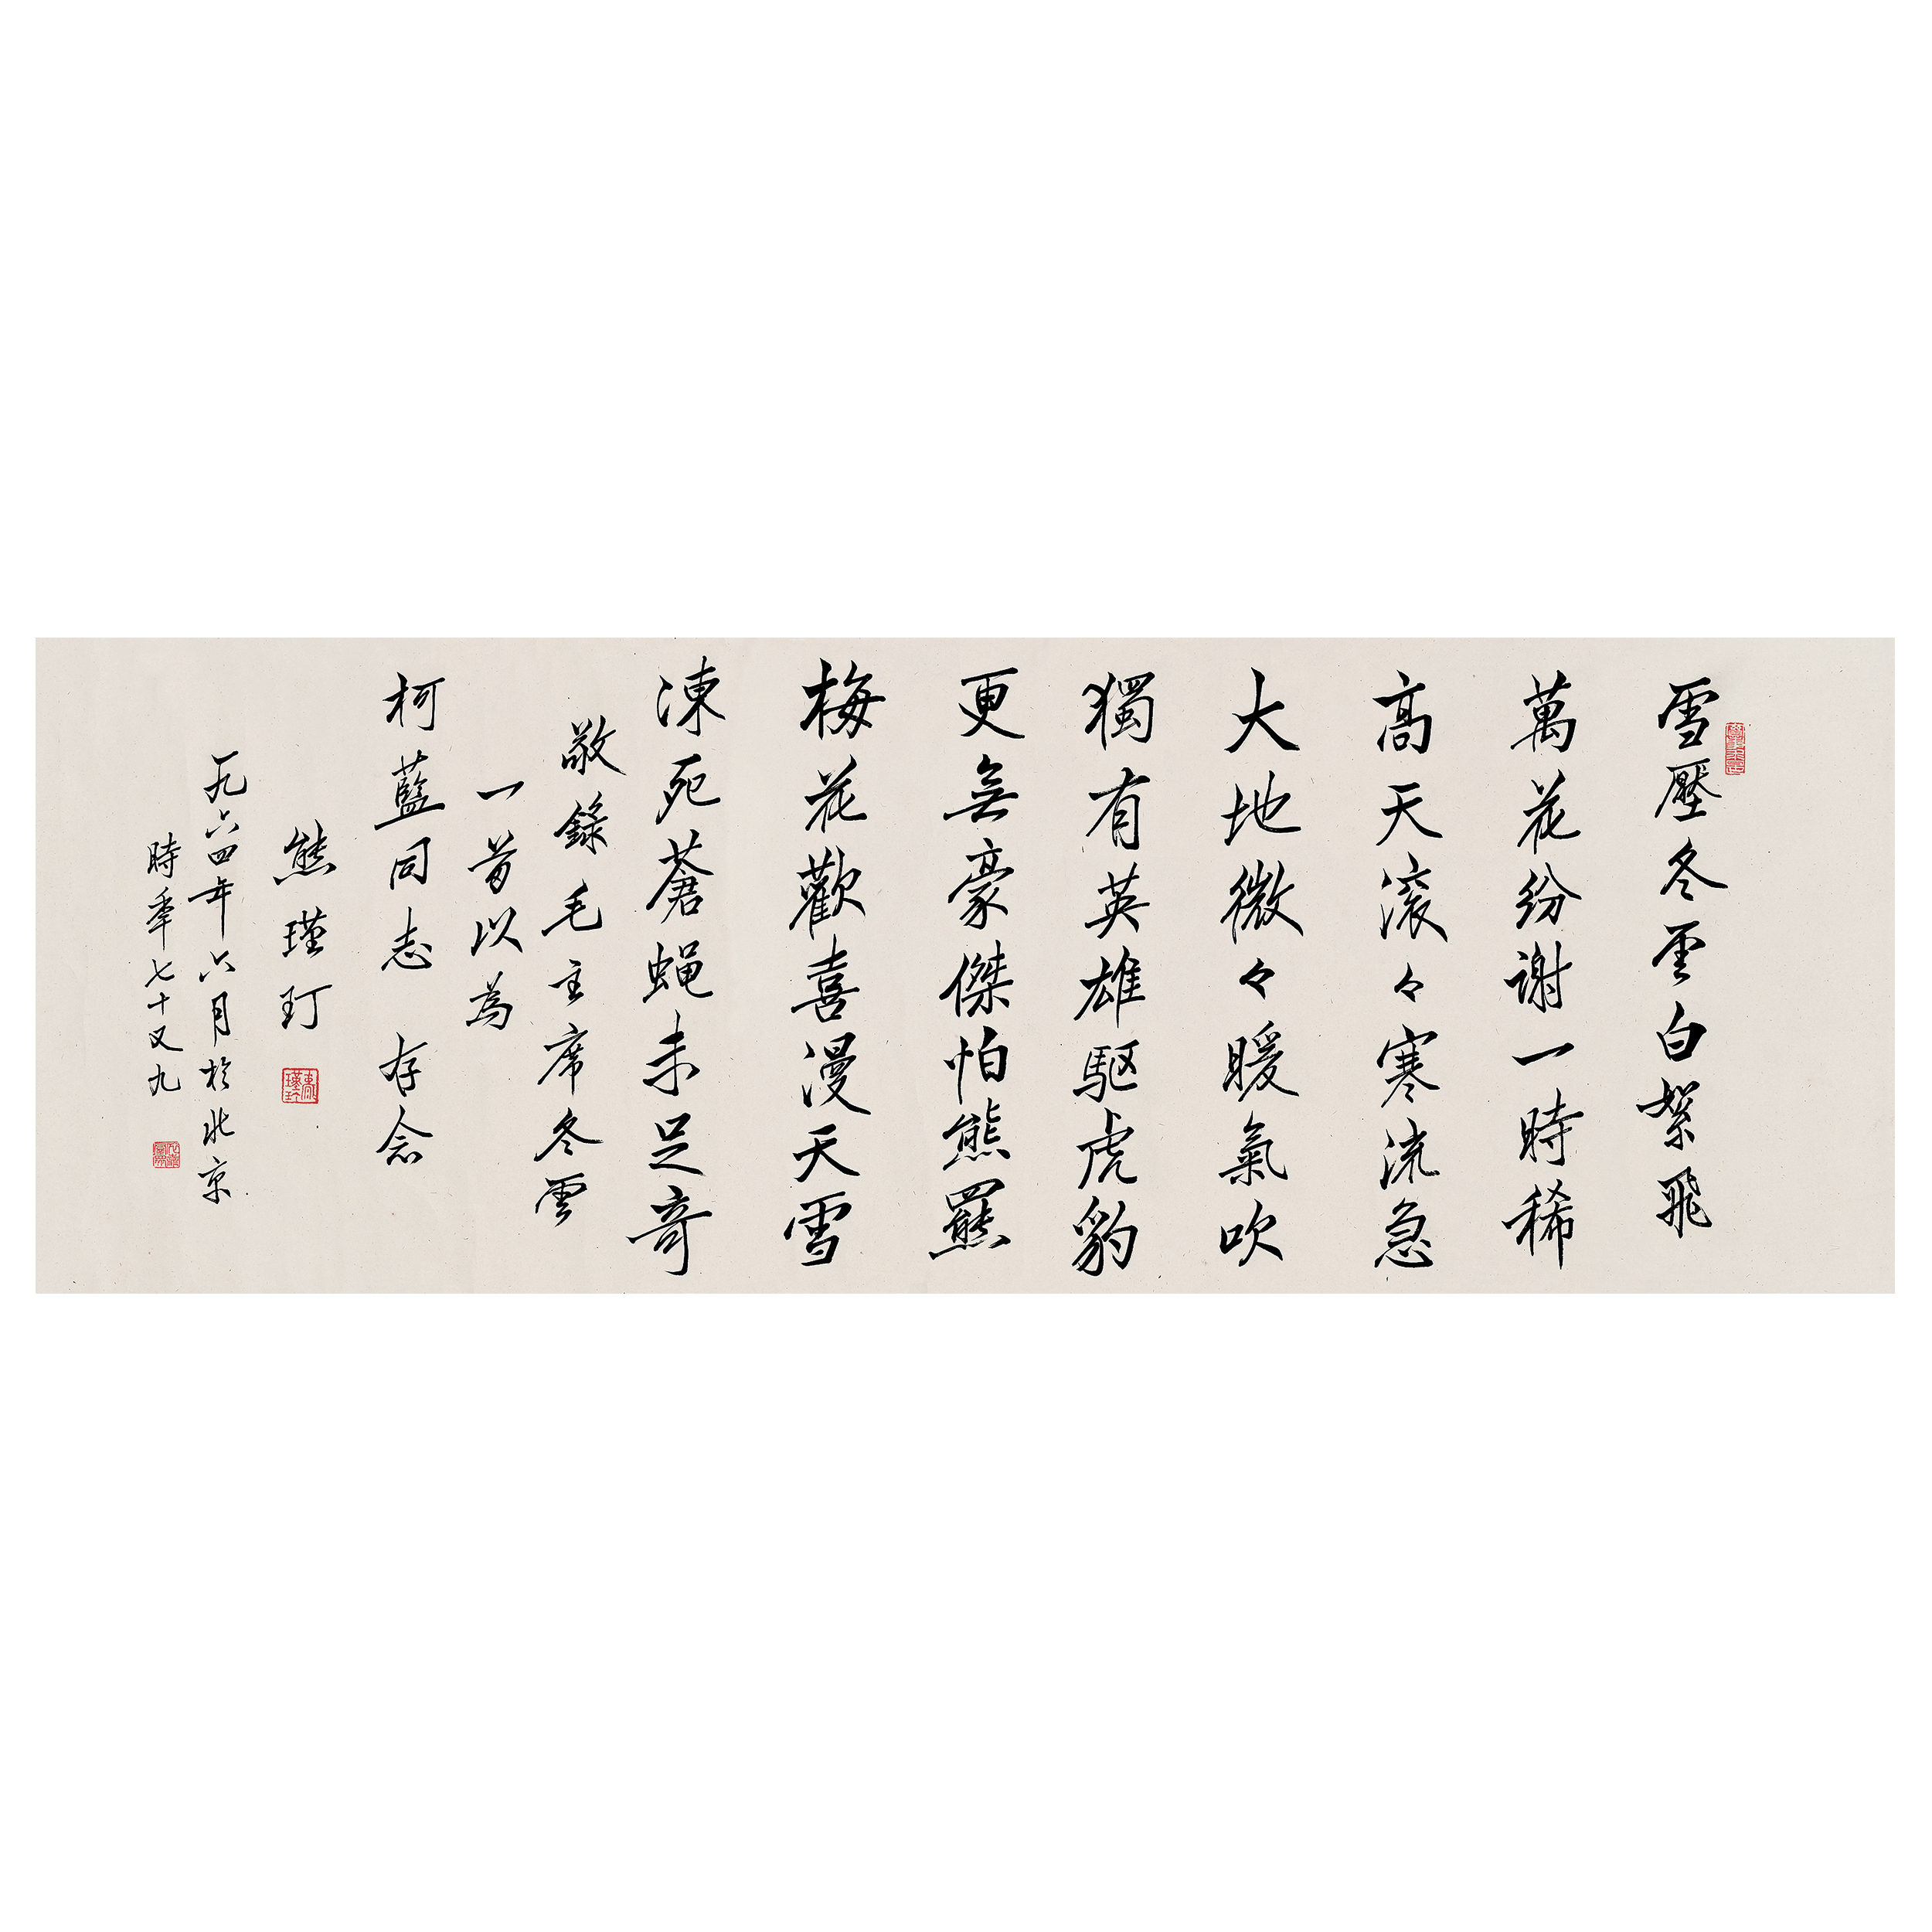 雪壓冬雲白絮飛
萬花紛謝一時稀
高天滚々寒流急
大地微々暖氣吹
獨有英雄驅虎豹
更無豪傑怕熊羆
梅花歡喜漫天雪
凍死蒼蝇未足奇
敬錄毛主席冬雲
一首以為
柯藍同志 存念
熊瑾玎
一九六四年六月於北京
時年七十又九